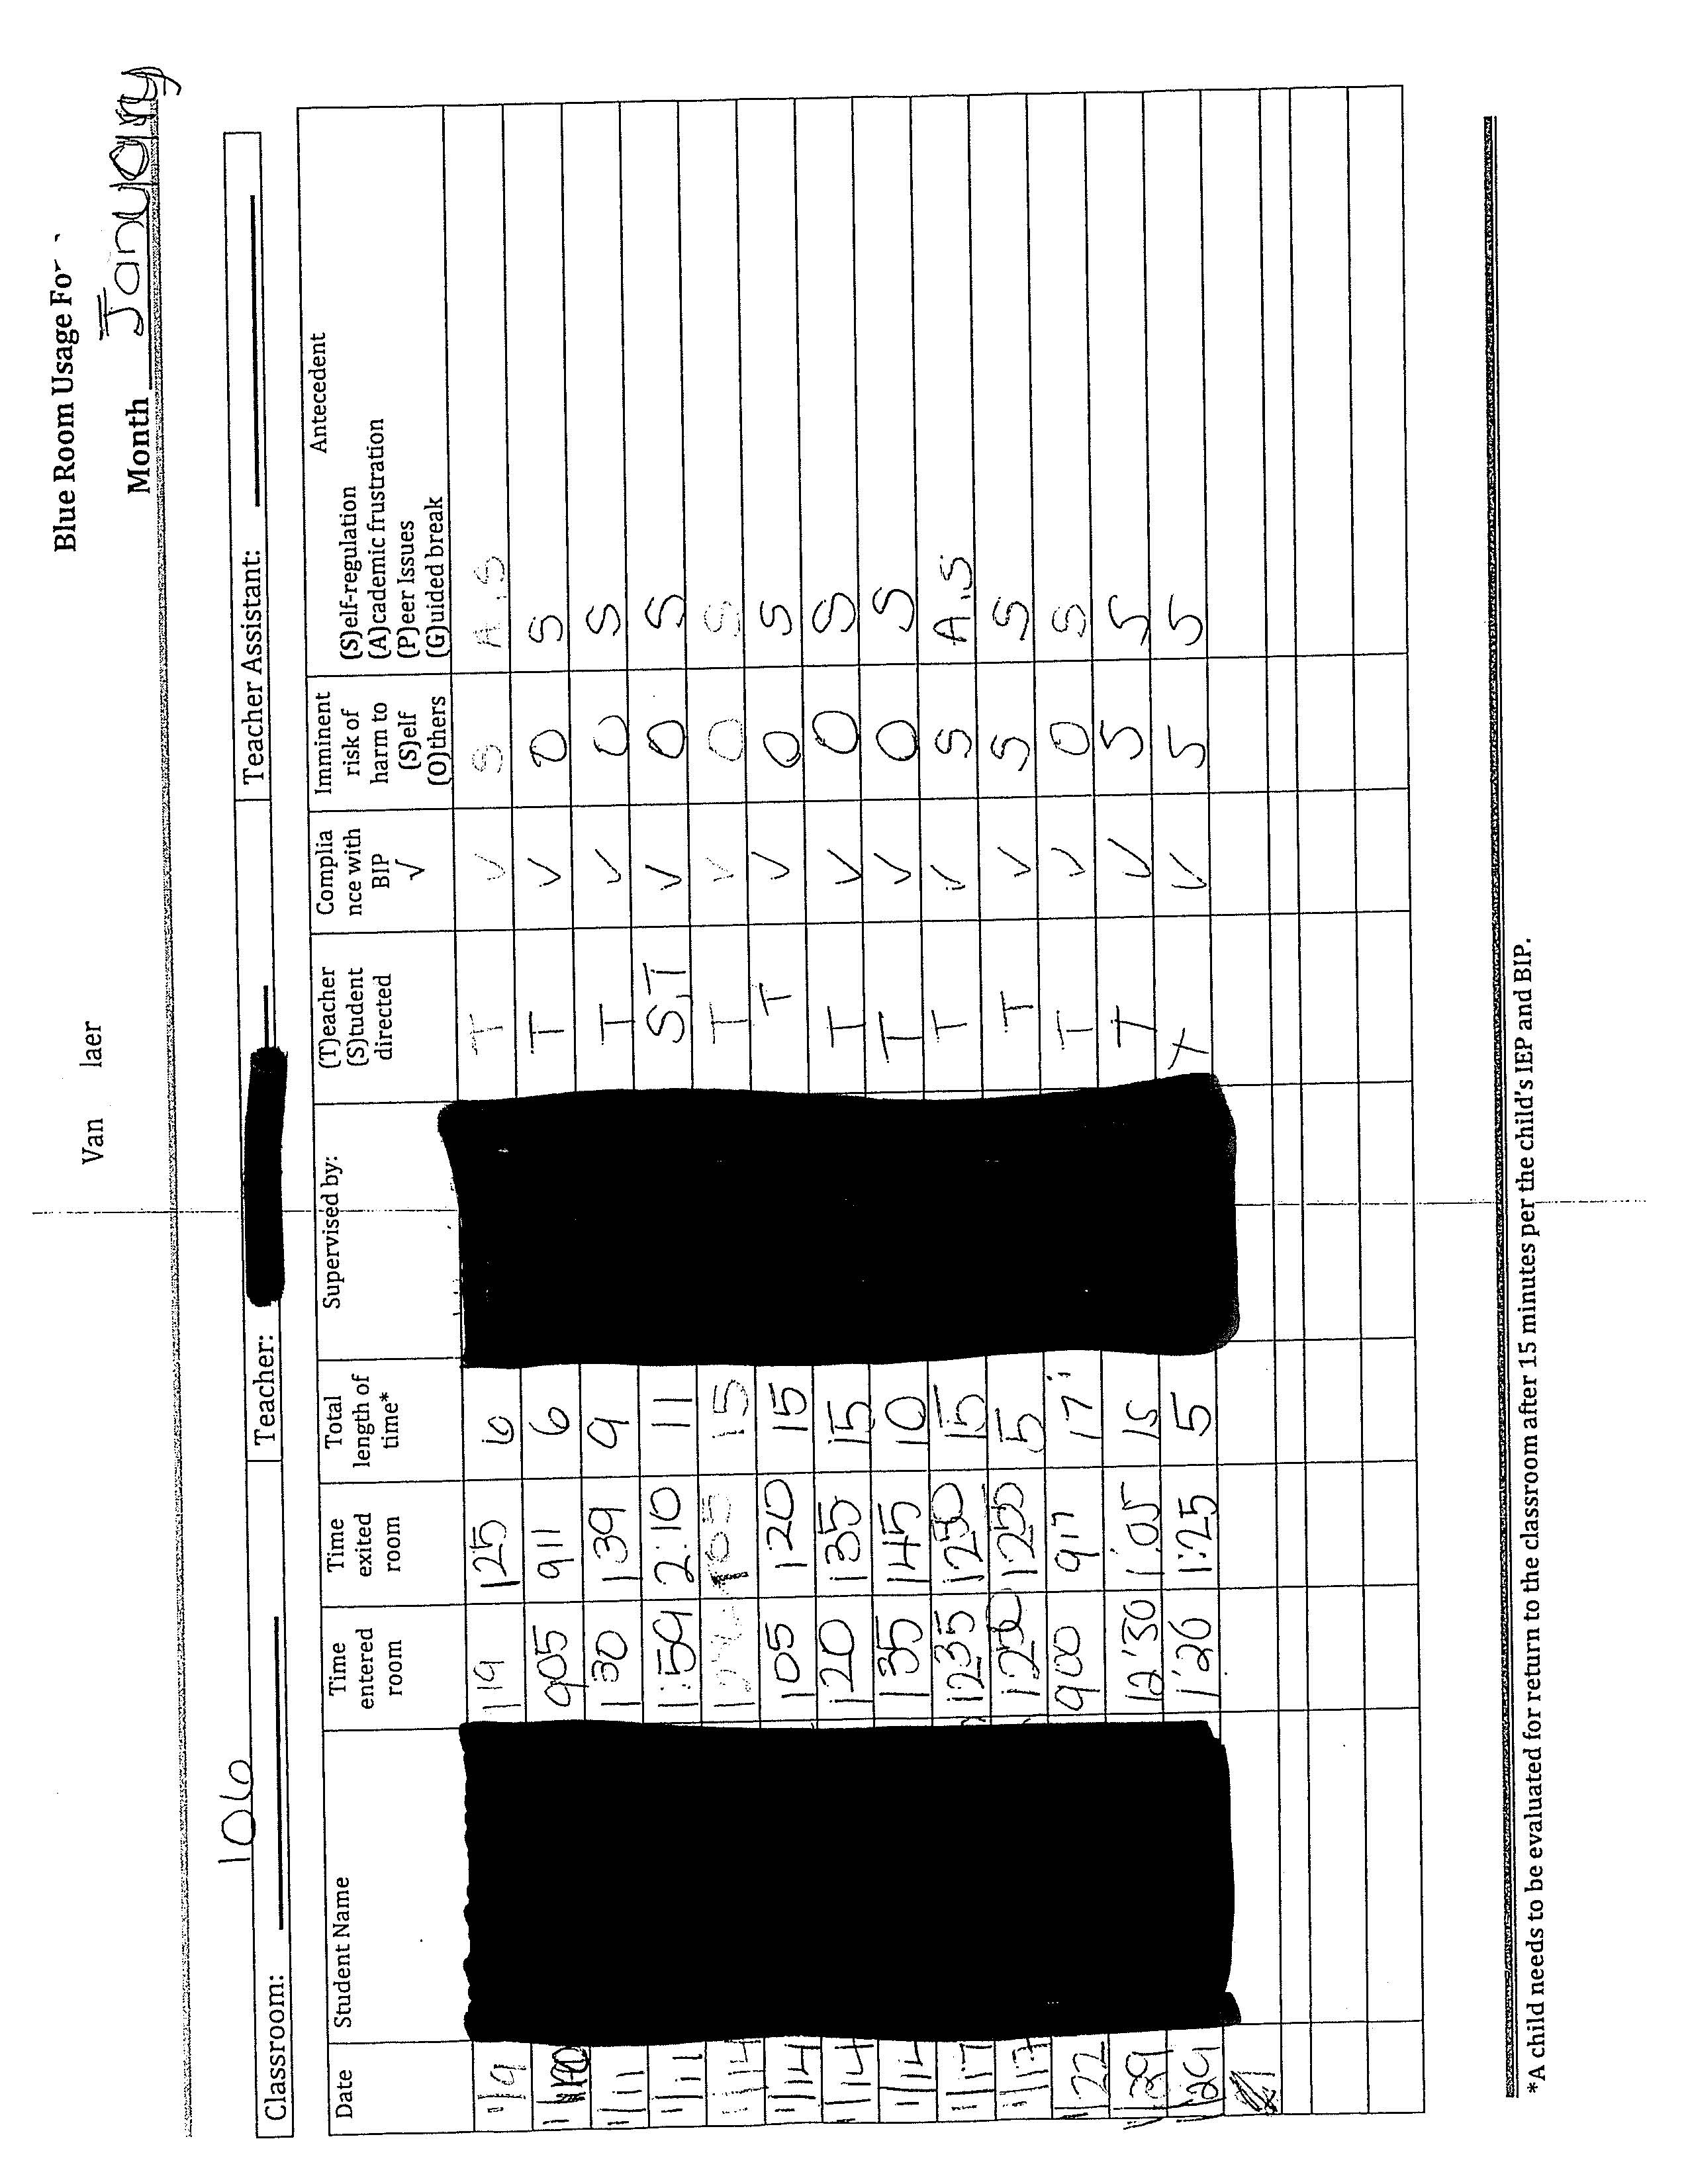 Blue Room Usage For
Van laer
Month January
106
Classroom: Teacher: Teacher Assistant:
Date Student Name Time entered room Time exited room Total length of time* Supervised by: (T)eacher (S)tudent directed Complia nce with BIP √ Imminent risk of harm to (S)elf (O)thers Antecedent (S)elf-regulation (A)cademic frustration (P)eer Issues (G)uided break
1/9 119 125 6 T √ S A.S
905 911 6 T √ O S
1/11 130 139 9 T √ O S
1/11 1:59 2:10 11 S,T √ O S
1/14 105 15 T √ O S
1/14 105 120 15 T √ O S
1/14 120 135 15 T √ O S
1/14 135 145 10 T √ O S
1/17 1235 1250 15 T √ S A.S
1/17 1250 1255 5 T √ S S
1/22 900 917 17 T √ O S
1/29 12:30 1:05 15 T √ S S
1/29 1:20 1:25 5 T √ S S
*A child needs to be evaluated for return to the classroom after 15 minutes per the child's IEP and BIP.